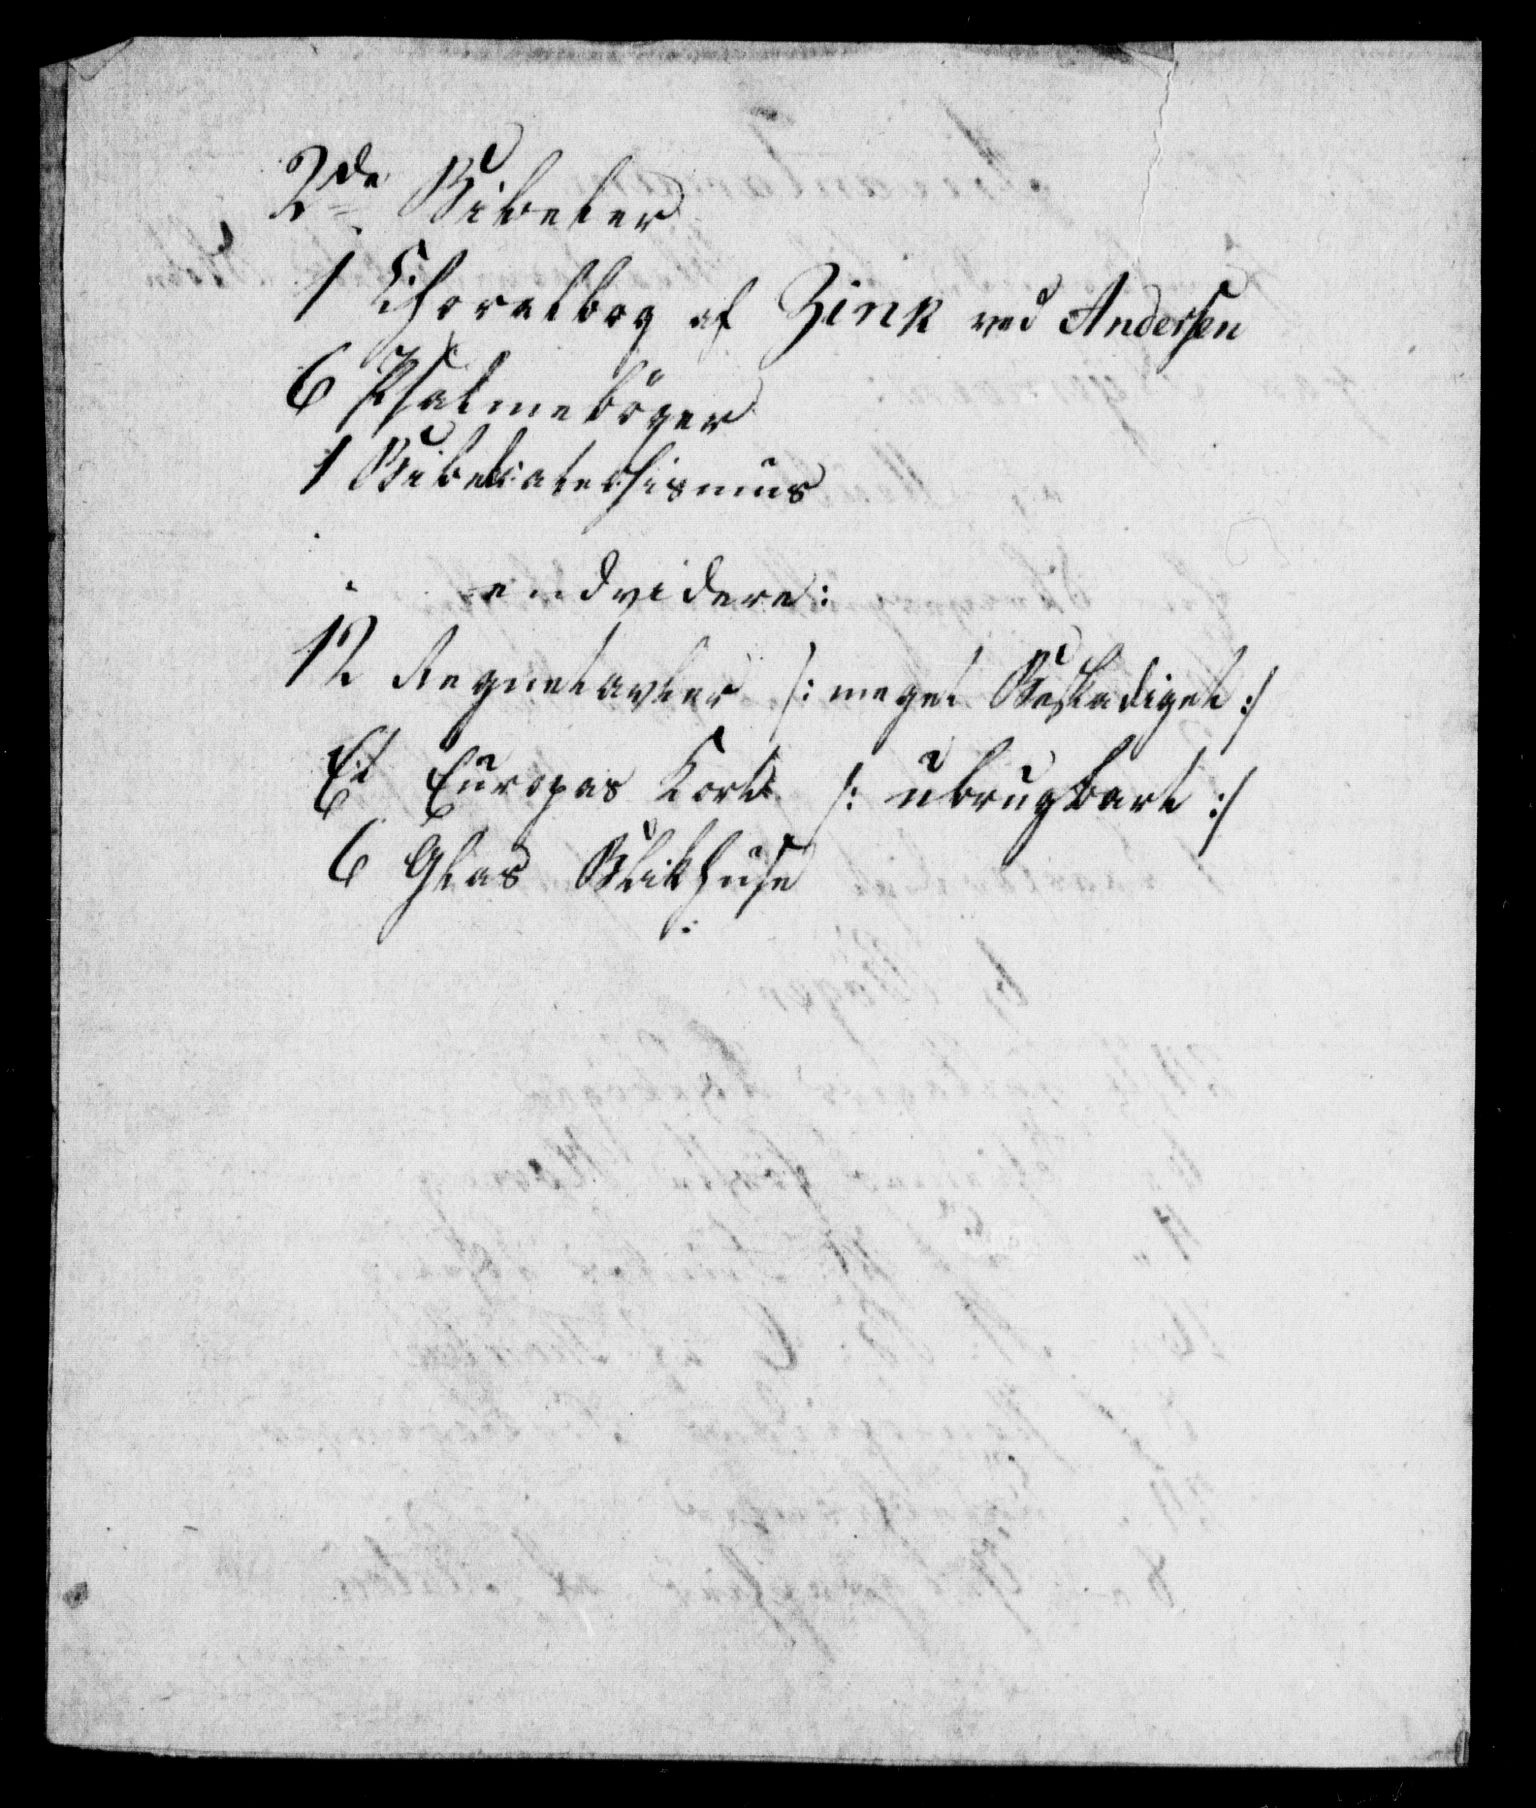 2de Bibeler
1 Choralbog af Zink ved Andersen
6 Psalmebøger
1 Bibelcatechismus
endvidere:
12 Regnetavler /: meget Beskadiget :/
Et Europas Kort /: ubrugbart :/
6 Glas Blækhuse